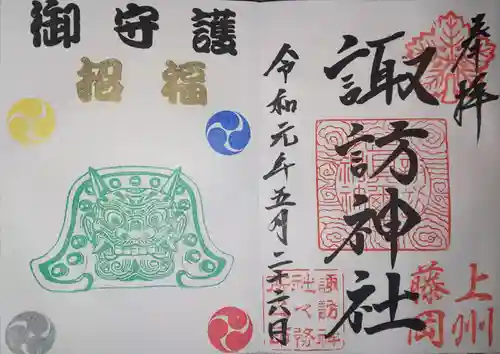 奉拝
諏訪神社
上州
藤岡
令和元年五月二十六日
諏訪神
社々務
御守護
招福